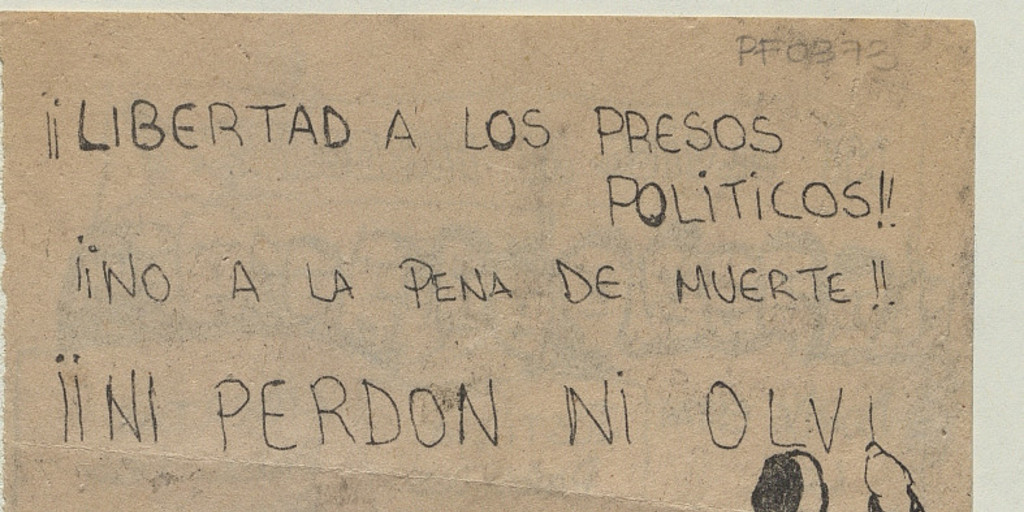 PF0873
¡¡LIBERTAD A LOS PRESOS
POLiTiCOS!!
¡¡NO A LA PENA DE MUERTE!!
¡¡NI PERDON Ni OLVI